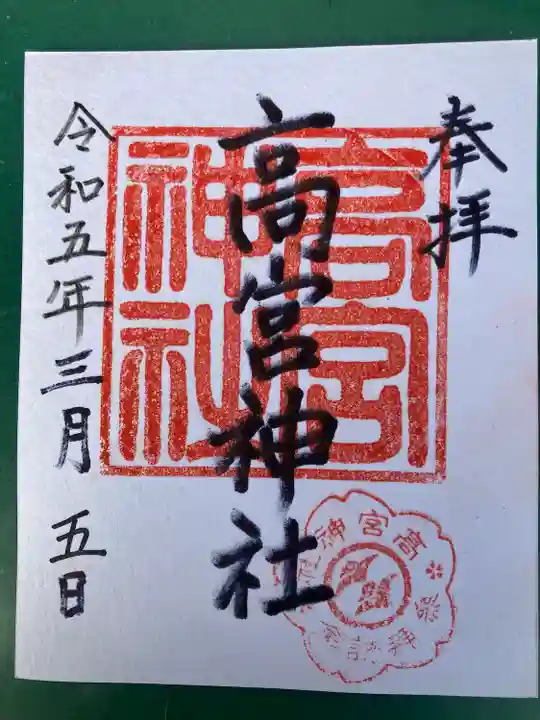 奉拝
高宮神社
高宮神社
令和五年三月 五日
高宮神社
参拝記念